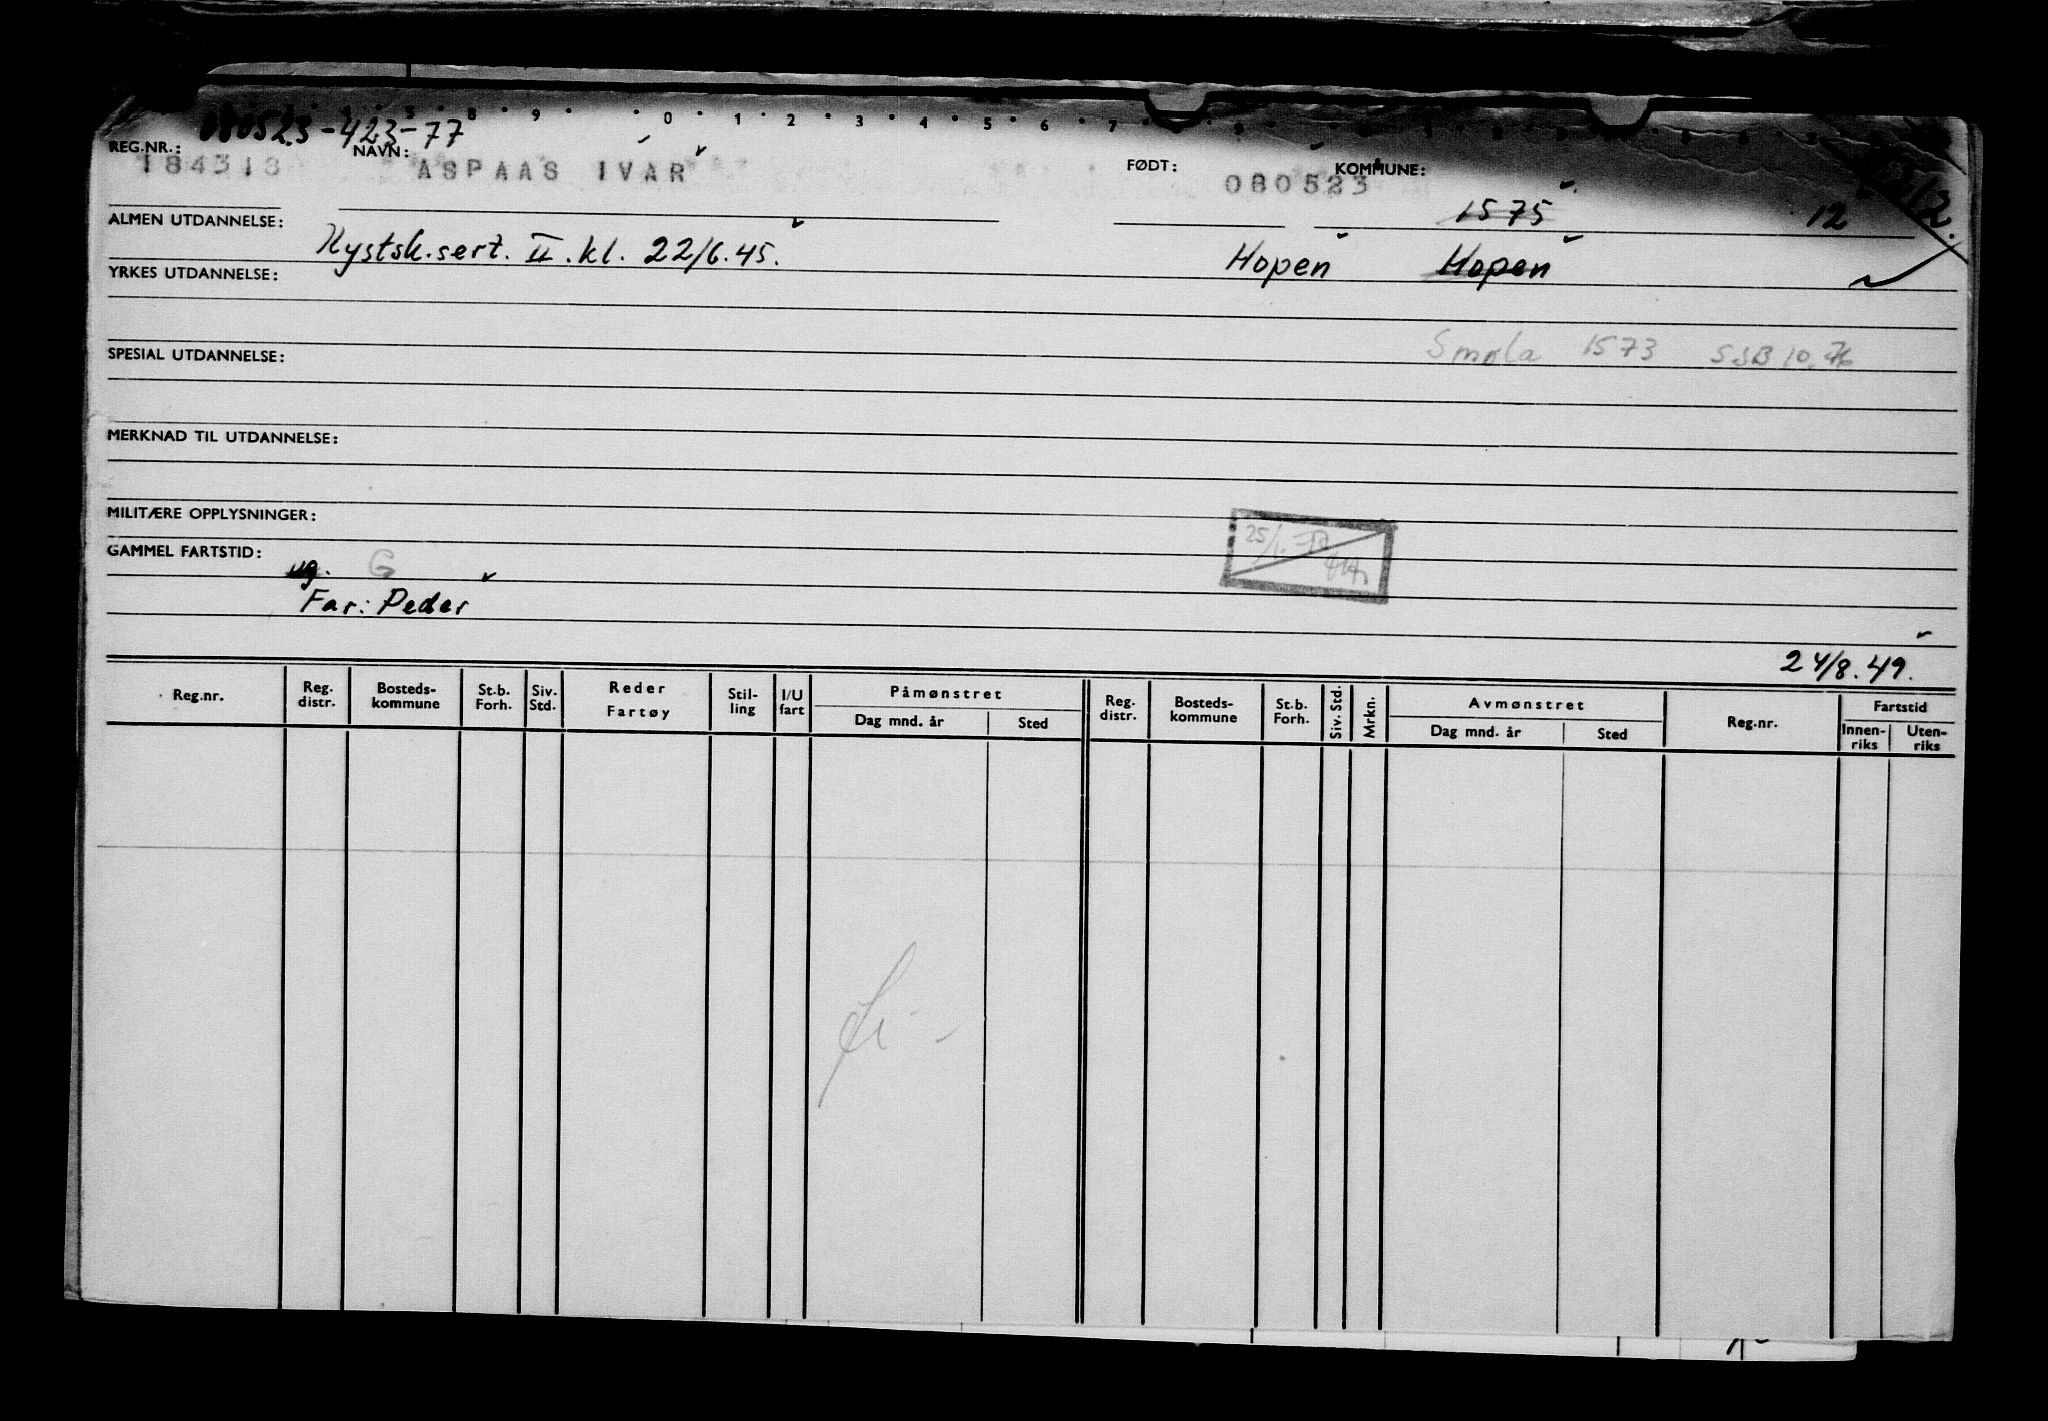 080523-423-77
8 9 0 1 2 3 4 5 6 7
REG.NR.: NAVN: FØDT: KOMMUNE:
184313 ASPAAS IVAR 080523
1575 12
ALMEN UTDANNELSE: Kystsk.sert. II. kl. 22/6.45. Hopen Hopen
YRKES UTDANNELSE:
Smøla 1573 SSB 10.76
SPESIAL UTDANNELSE:
MERKNAD TIL UTDANNELSE:
MILITÆRE OPPLYSNINGER:
GAMMEL FARTSTID: ug. G
Far: Peder
24/8.49.
Reg.nr. Reg. distr. Bosteds-kommune St.b. Forh. Siv. Std. Reder Fartøy Stil-ling I/U fart Påmønstret Dag mnd. år Sted Reg. distr. Bosteds-kommune St.b. Forh. Siv. Std. Mrkn. Avmønstret Dag mnd. år Sted Reg.nr. Fartstid Innen-riks Uten-riks